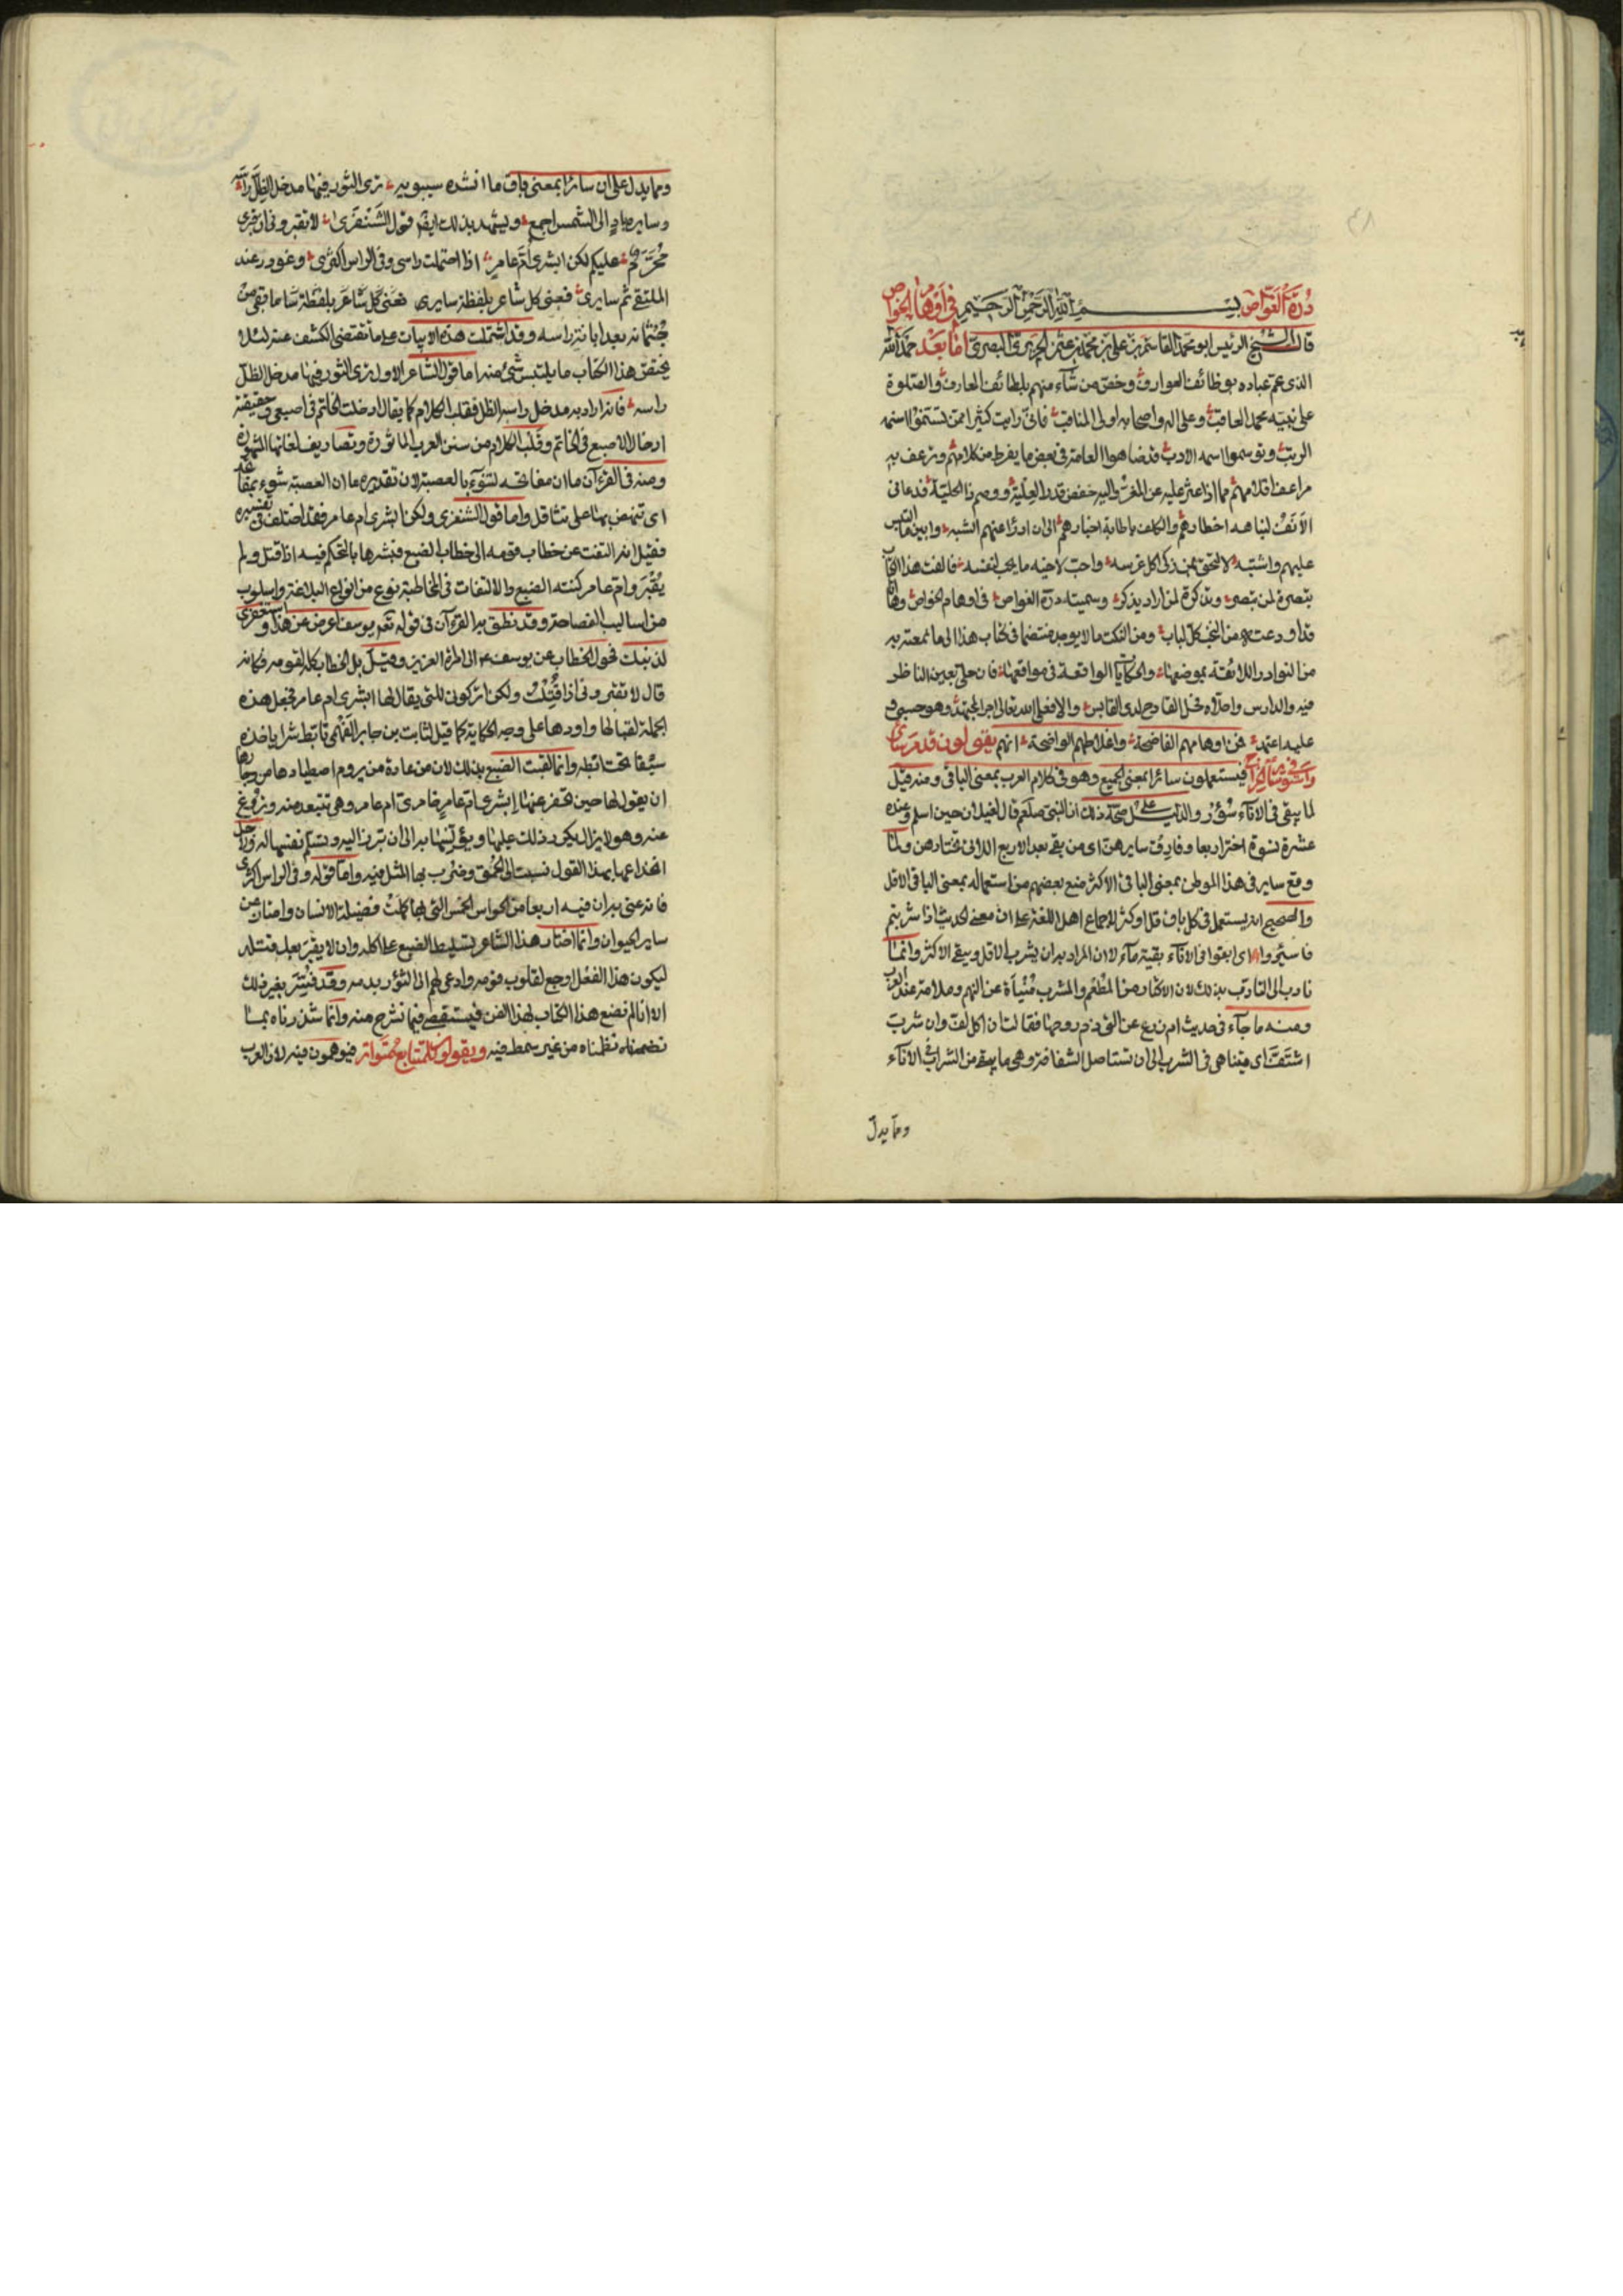 درة الغواص بسم الله الرحمن الرحيم في اوهام الخواص
قال الشيخ الرئيس ابو محمد القاسم بن علي بن محمد بن عثمن الحريري البصري اما بعد حمد الله
الذي عم عباده بوظائف العوارف وخص من شآء منهم بلطائف المعارف والصلوة
على نبيه محمد العاقب وعلى اله واصحابه اولى المناقب فاني رايت كثيرا ممن تسنموا اسنمه
الرتب وتوسموا اسمه الادب قد ضاهوا العامة في بعض ما يفرط من كلامهم وترعف به
مراعف اقلامهم مما اذا عثر عليه عن المغر واليه خفض قدر العلية ووصم ذا الحلية فدعاني
الانف لنباهه اخطارهم والكلف باطابة اخبارهم الى ان ادرا عنهم الشبه وابين ما التبس
عليهم واشتبه لالتحق بمن زكى اكل غرسه واحب لاخيه ما يحب لنفسه فالفت هذا الكتاب
تبصرة لمن تبصر وتذكرة لمن اراد يذكر وسميته درة الغواص في اوهام الخواص وها انا
قد اودعته من النخب كل لباب ومن النكت ما لا يوجد منتظما في كتاب هذا الى ما لمعته به
من النوادر اللائقة بموضعها والحكايات الواقعة في مواقعها فان حلي بعين الناظر
فيه والدارس واحلاه محل القادح لدى القابس والا فعلى الله تعالى اجر المجتهد وهو حسبي و
عليه اعتمد فمن اوهامهم الفاضحة واغلاطهم الواضحة انهم يقولون قدم ساير
واستوفي ساير الخراج فيستعملون سائرا بمعنى الجميع وهو في كلام العرب بمعنى الباقي ومنه قيل
لما يبقى في الانآء سؤر والدليل على صحة ذلك ان النبي صلعم قال لغيلان حين اسلم وعنده
عشرة نسوة اختر اربعا وفارق سايرهن اى من بقي بعد الاربع اللاتي تختارهن ولما
وقع ساير في هذا الموطن بمعنى الباقي الاكثر منع بعضهم من استعماله بمعنى الباقي الاقل
والصحيح انه يستعمل في كل باق قل او كثر لاجماع اهل اللغة على ان معنى الحديث اذا شربتم
فاسئروا اى ابقوا في الانآء بقية مآء لان المراد به ان يشرب الاقل ويبقى الاكثر وانما
نادب الى التادب بذلك لان الاكثار من المطعم والمشرب منبأة عن النهم وملامة عند العرب
ومنه ما جآء في حديث ام زرع عن التي ذم زوجها فقالت ان اكل لف وان شرب
اشتف اى يتناهى في الشرب الى ان تستاصل الشفافة وهي ما يبقى من الشراب في الانآء
ومما يدل
ومما يدل على ان سائرا بمعنى باق ما انشده سيبويه ترى الثور فيها مدخل الظل راسه
وسايره باد الى الشمس اجمع ويشهد بذلك ايضا قول الشنفرى لا تقبروني ان قبري
محرم عليكم لكن ابشرى ام عامر اذا احتملت راسى وفي الراس اكثرى وغودر عند
الملتقى ثم سايرى فعنى كل شاعر بلفظة سايرى فعنى كل شاعر بلفظة سا ما بقي من
جثمانه بعد ابانة راسه وقد اشتملت هذه الابيات على ما تقتضي الكشف عنه لئلا
يحتقق هذا الكتاب ما يلتبس شئ منه اما قول الشاعر الاول ترى الثور فيها مدخل الظل
راسه فانه اراد به مدخل راسه الظل فقلب الكلام كما يقال ادخلت الخاتم في اصبعي وحقيقته
ادخال الاصبع في الخاتم وقلب الكلام من سنن العرب الماثورة وتصاريف لغاتها المشهورة
ومنه في القرءان ما ان مفاتحه لتنوء بالعصبة لان تقديره ما ان العصبة تنوء بمفاتحه
اى تنهض بها على تثاقل واما قول الشنفرى ولكن ابشرى ام عامر فقد اختلف في تفسيره
فقيل انه التفت عن خطاب قومه الى خطاب الضبع فبشرها بالتحكم فيه اذا قتل ولم
يقبر وام عامر كنية الضبع والالتفات في المخاطبة نوع من انواع البلاغة واسلوب
من اساليب الفصاحة وقد نطق به القرءان في قوله تعم يوسف اعرض عن هذا واستغفرى
لذنبك فحول الخطاب عن يوسف ع الى امرأة العزيز وقيل بل الخطاب كله لقومه فكانه
قال لا تقبروني اذا قتلت ولكن اتركوني للتي يقال لها ابشرى ام عامر فجعل هذه
الجملة لقبا لها واوردها على وجه الحكاية كما قيل لثابت بن جابر الفهمي تابط شرا باخذه
سيفا تحت ابطه وانما لقبت الضبع بذلك لان من عادة من يروم اصطيادها من وجارها
ان يقول لها حين تحفر عنها ابشرى ام عامر خامرى ام عامر وهي تتبعد منه وتروغ
عنه وهو لا يزال يكرر ذلك عليها ويؤنسها به الى ان تبرز اليه وتسلم نفسها له ولاجل
انخداعها بهذا القول نسبت الى الحمق وضرب بها المثل فيه واما قوله وفي الراس اكثرى
فانه عنى به ان فيه اربعا من الحواس الخمس التي بها كملت فضيلة الانسان وامتاز عن
ساير الحيوان وانما اختار هذا الشاعر تسليط الضبع على اكله وان لا يقبر بعد قتله
ليكون هذا الفعل اوجع لقلوب قومه وادعى لهم الى الثؤر بدمه وقد فسر بغير ذلك
الا انا لم نضع هذا الكتاب لهذا الفن فيستقصى فيما نشرح منه وانما شذرناه بما
تضمنه نظمناه من غير سمط فيه ويقولون للمتتابع متواتر فيوهمون فيه لان العرب